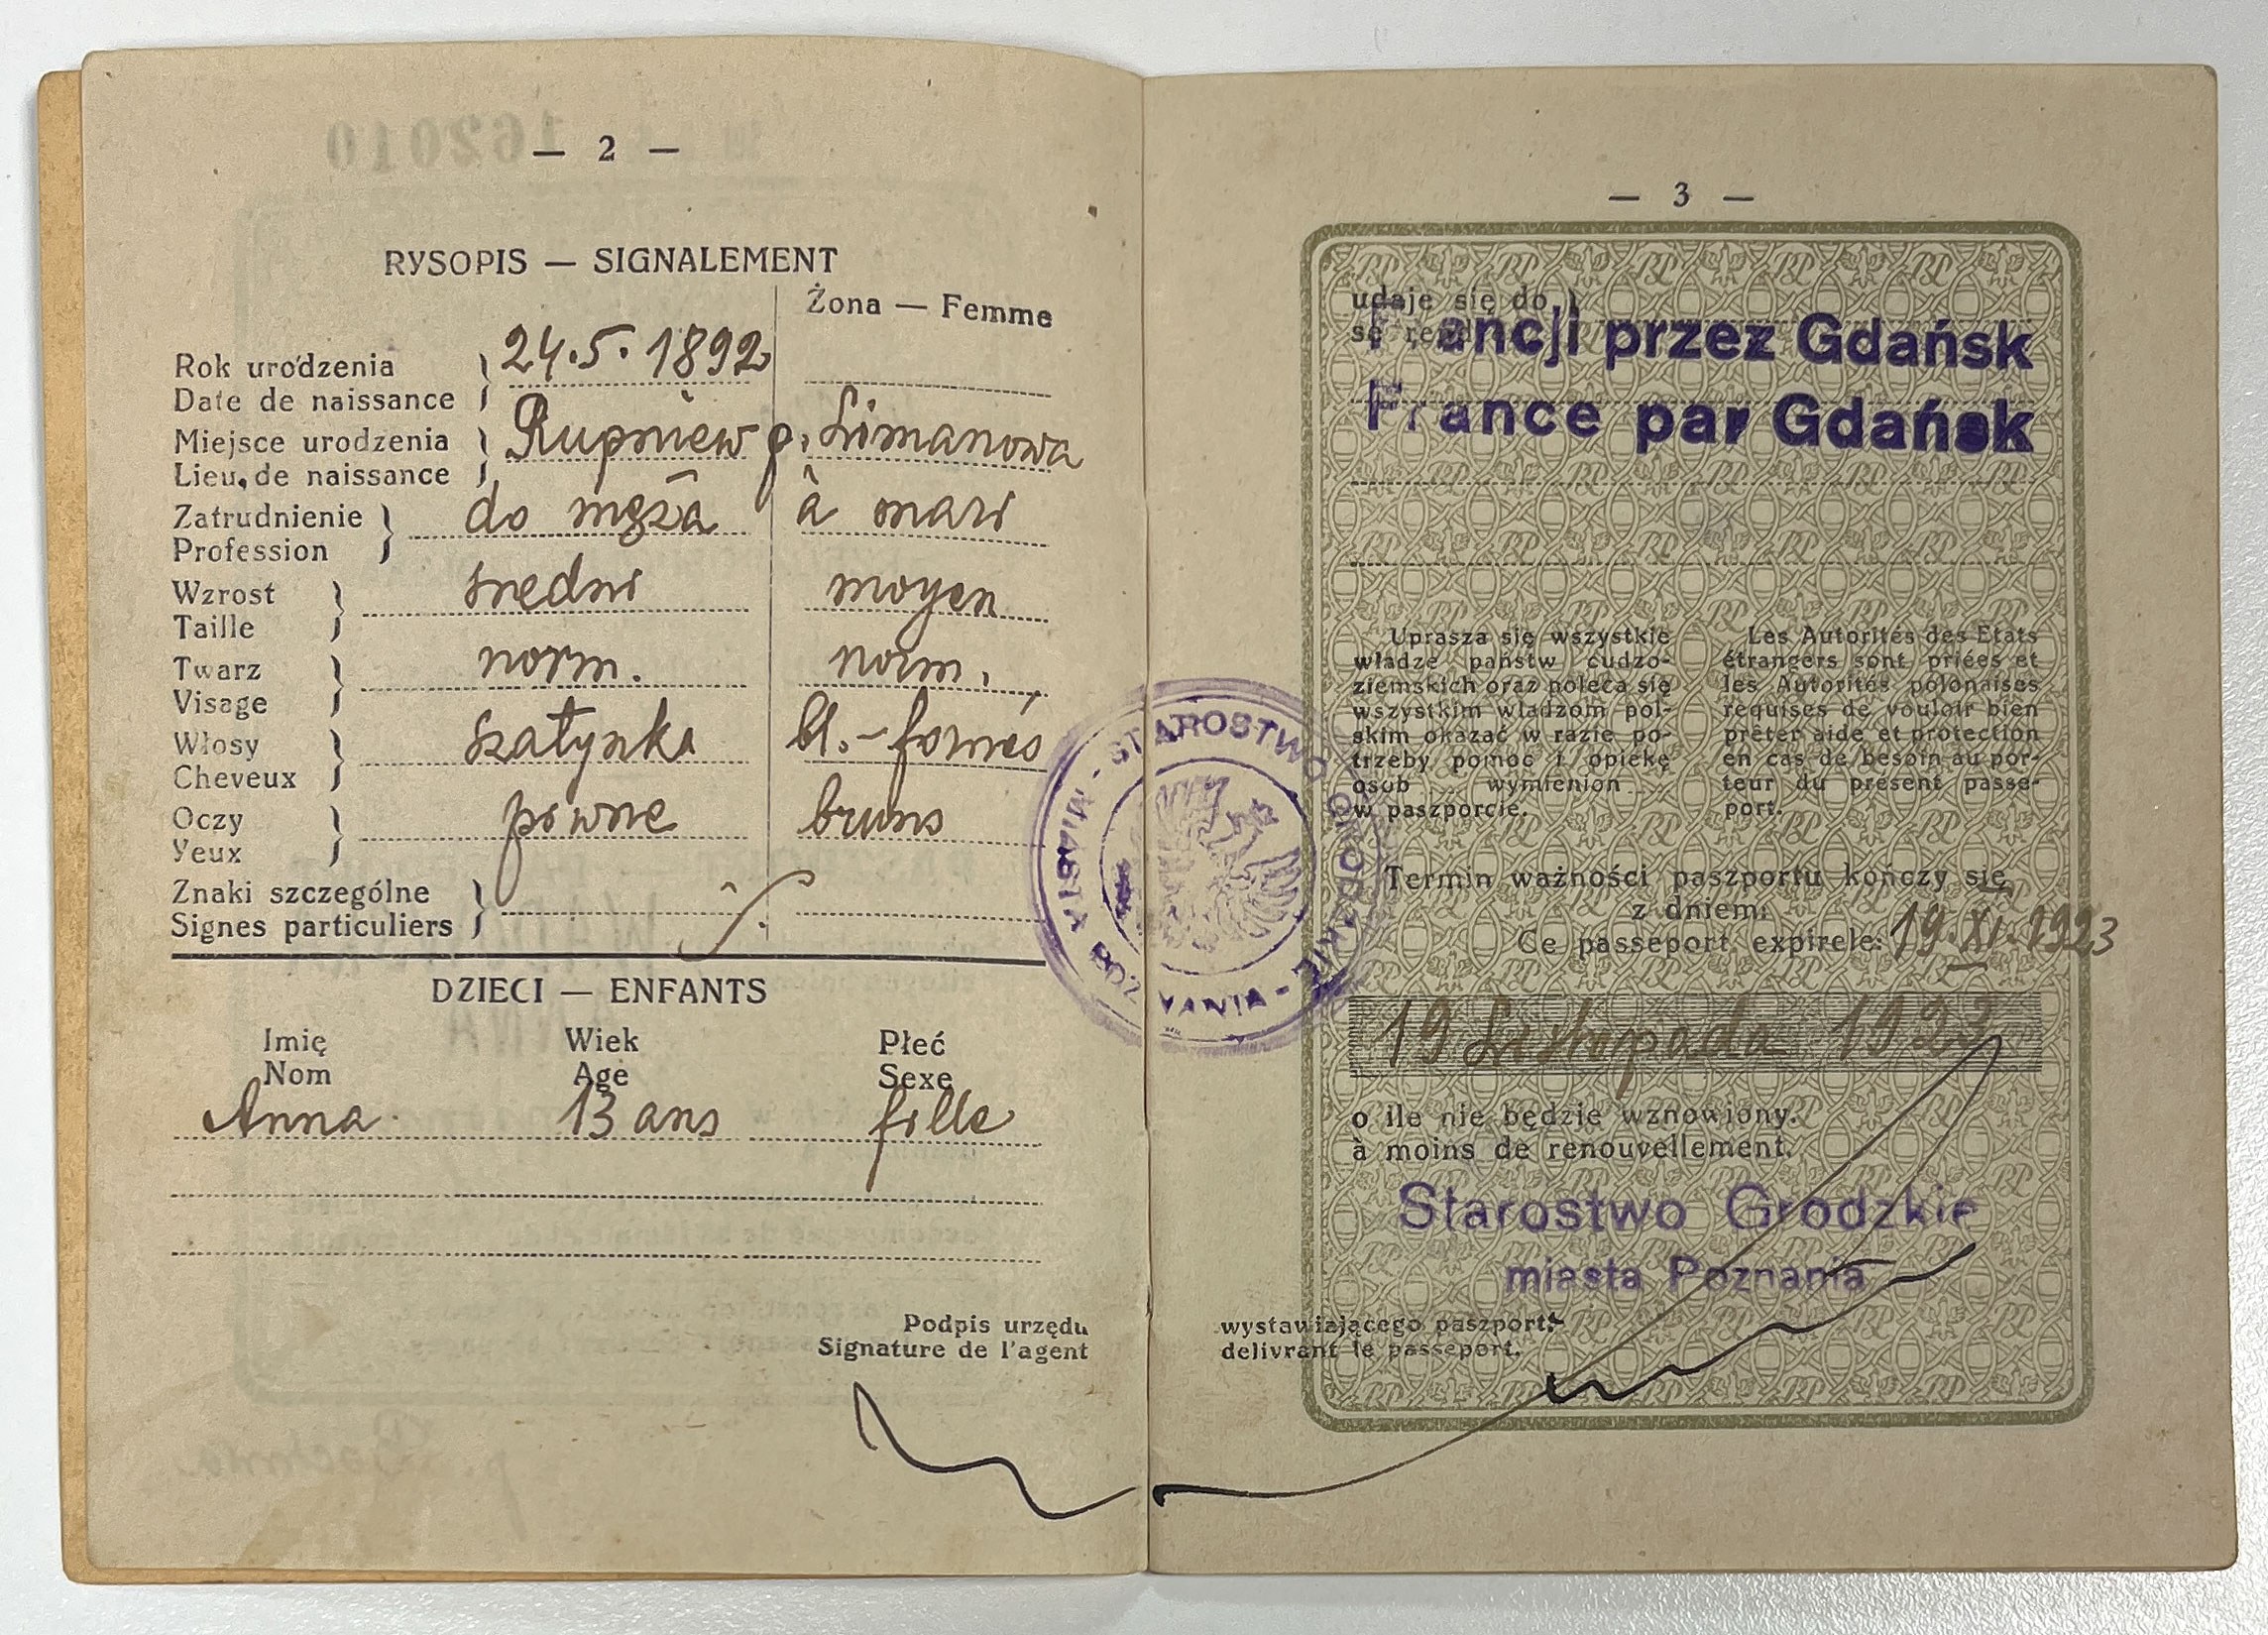 — 2 —
RYSOPIS — SIGNALEMENT
Żona — Femme
Rok urodzenia
Date de naissance
24.5.1892
Miejsce urodzenia
Lieu de naissance
Rupniew p. Limanowa
Zatrudnienie
Profession
do męża à mari
Wzrost
Taille
średni moyen
Twarz
Visage
norm. norm.
Włosy
Cheveux
szatynka bl.-foncés
Oczy
Yeux
piwne bruns
Znaki szczególne
Signes particuliers
DZIECI — ENFANTS
Imię Wiek Płeć
Nom Age Sexe
Anna 13 ans fille
Podpis urzędu
Signature de l'agent
STAROSTWO GRODZKIE - MIASTA POZNANIA -
— 3 —
udaje się do
se rend
Francji przez Gdańsk
France par Gdańsk
Uprasza się wszystkie
władze państw cudzo-
ziemskich oraz poleca się
wszystkim władzom pol-
skim okazać w razie po-
trzeby pomoc i opiekę
osob wymienion
w paszporcie.
Les Autorités des Etats
étrangers sont priées et
les Autorités polonaises
requises de vouloir bien
prêter aide et protection
en cas de besoin au por-
teur du présent passe-
port.
Termin ważności paszportu kończy się
z dniem:
Ce passeport expirele: 19.XI.1923
19 Listopada 1923
o ile nie będzie wznowiony.
à moins de renouvellement.
Starostwo Grodzkie
miasta Poznania
wystawiającego paszport.
delivrant le passeport.